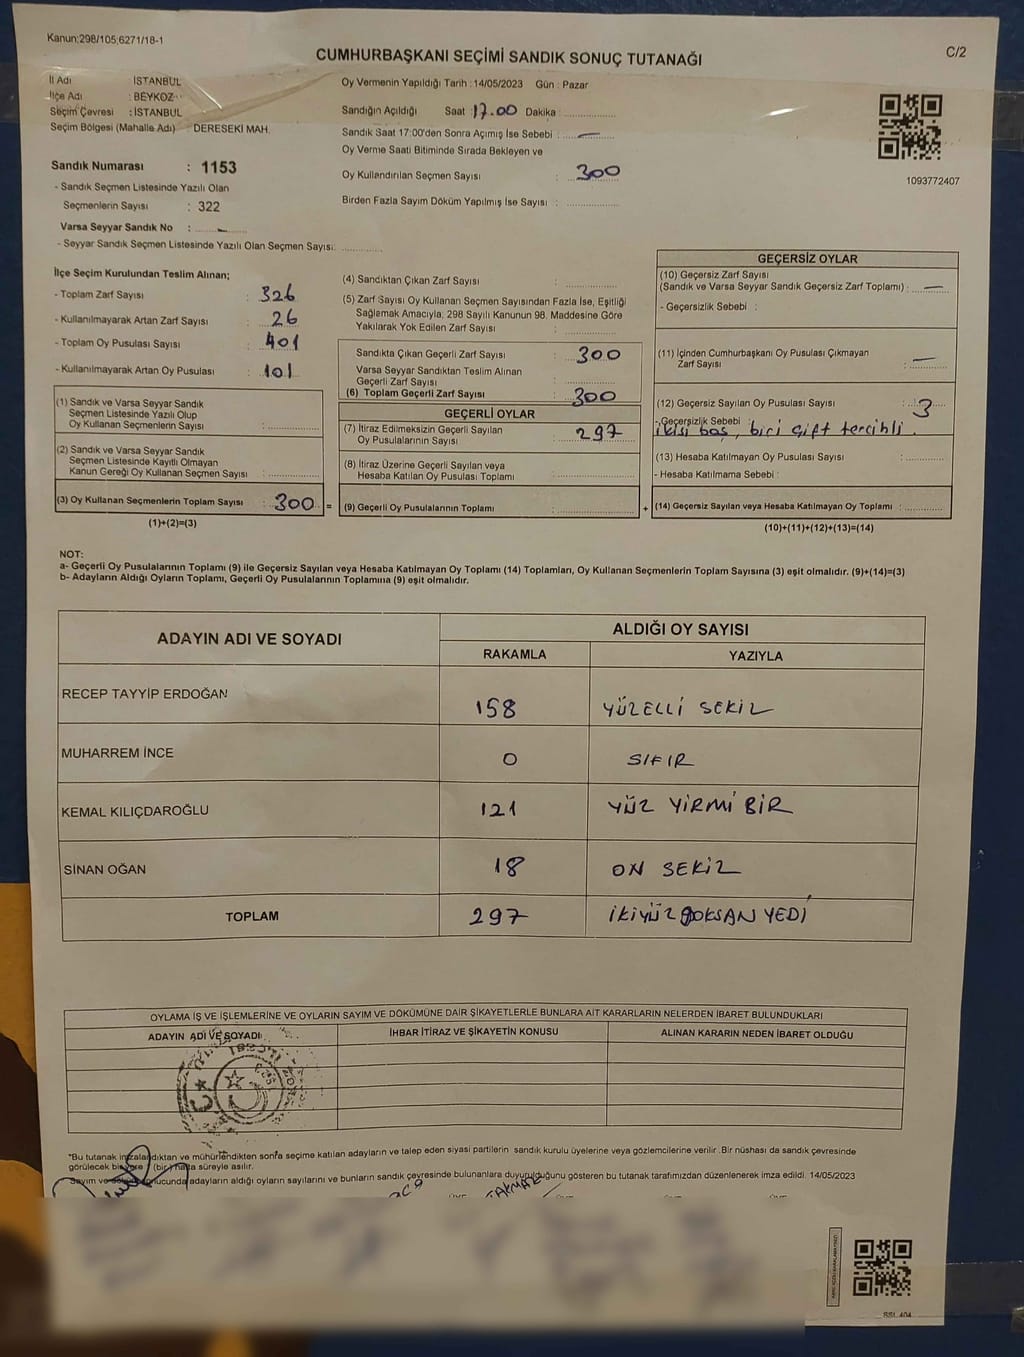 Kanun:298/105;6271/18-1
C/2
CUMHURBAŞKANI SEÇİMİ SANDIK SONUÇ TUTANAĞI
İl Adı : İSTANBUL
İlçe Adı : BEYKOZ
Seçim Çevresi : İSTANBUL
Seçim Bölgesi (Mahalle Adı) : DERESEKİ MAH.
Oy Vermenin Yapıldığı Tarih : 14/05/2023 Gün : Pazar
Sandığın Açıldığı Saat 17.00 Dakika :
Sandık Saat 17:00'den Sonra Açımış İse Sebebi : —
Oy Verme Saati Bitiminde Sırada Bekleyen ve
Oy Kullandırılan Seçmen Sayısı : 300
Birden Fazla Sayım Döküm Yapılmış İse Sayısı :
1093772407
Sandık Numarası : 1153
- Sandık Seçmen Listesinde Yazılı Olan
Seçmenlerin Sayısı : 322
Varsa Seyyar Sandık No : —
- Seyyar Sandık Seçmen Listesinde Yazılı Olan Seçmen Sayısı:
İlçe Seçim Kurulundan Teslim Alınan;
- Toplam Zarf Sayısı : 326
- Kullanılmayarak Artan Zarf Sayısı : 26
- Toplam Oy Pusulası Sayısı : 401
- Kullanılmayarak Artan Oy Pusulası : 101
(1) Sandık ve Varsa Seyyar Sandık
Seçmen Listesinde Yazılı Olup
Oy Kullanan Seçmenlerin Sayısı :
(2) Sandık ve Varsa Seyyar Sandık
Seçmen Listesinde Kayıtlı Olmayan
Kanun Gereği Oy Kullanan Seçmen Sayısı :
(3) Oy Kullanan Seçmenlerin Toplam Sayısı : 300 =
(1)+(2)=(3)
(4) Sandıktan Çıkan Zarf Sayısı :
(5) Zarf Sayısı Oy Kullanan Seçmen Sayısından Fazla İse, Eşitliği
Sağlamak Amacıyla; 298 Sayılı Kanunun 98. Maddesine Göre
Yakılarak Yok Edilen Zarf Sayısı :
Sandıkta Çıkan Geçerli Zarf Sayısı : 300
Varsa Seyyar Sandıktan Teslim Alınan
Geçerli Zarf Sayısı :
(6) Toplam Geçerli Zarf Sayısı : 300
GEÇERLİ OYLAR
(7) İtiraz Edilmeksizin Geçerli Sayılan
Oy Pusulalarının Sayısı : 297
(8) İtiraz Üzerine Geçerli Sayılan veya
Hesaba Katılan Oy Pusulası Toplamı :
(9) Geçerli Oy Pusulalarının Toplamı : +
GEÇERSİZ OYLAR
(10) Geçersiz Zarf Sayısı
(Sandık ve Varsa Seyyar Sandık Geçersiz Zarf Toplamı) : —
- Geçersizlik Sebebi :
(11) İçinden Cumhurbaşkanı Oy Pusulası Çıkmayan
Zarf Sayısı : —
(12) Geçersiz Sayılan Oy Pusulası Sayısı : 3
-Geçersizlik Sebebi :
ikisi boş, biri çift tercihli.
(13) Hesaba Katılmayan Oy Pusulası Sayısı :
- Hesaba Katılmama Sebebi :
(14) Geçersiz Sayılan veya Hesaba Katılmayan Oy Toplamı :
(10)+(11)+(12)+(13)=(14)
NOT:
a- Geçerli Oy Pusulalarının Toplamı (9) ile Geçersiz Sayılan veya Hesaba Katılmayan Oy Toplamı (14) Toplamları, Oy Kullanan Seçmenlerin Toplam Sayısına (3) eşit olmalıdır. (9)+(14)=(3)
b- Adayların Aldığı Oyların Toplamı, Geçerli Oy Pusulalarının Toplamına (9) eşit olmalıdır.
ADAYIN ADI VE SOYADI
ALDIĞI OY SAYISI
RAKAMLA YAZIYLA
RECEP TAYYİP ERDOĞAN 158 YÜZELLİ SEKİZ
MUHARREM İNCE 0 SIFIR
KEMAL KILIÇDAROĞLU 121 YÜZ YİRMİ BİR
SİNAN OĞAN 18 ON SEKİZ
TOPLAM 297 İKİYÜZ DOKSAN YEDİ
OYLAMA İŞ VE İŞLEMLERİNE VE OYLARIN SAYIM VE DÖKÜMÜNE DAİR ŞİKAYETLERLE BUNLARA AİT KARARLARIN NELERDEN İBARET BULUNDUKLARI
ADAYIN ADI VE SOYADI İHBAR İTİRAZ VE ŞİKAYETİN KONUSU ALINAN KARARIN NEDEN İBARET OLDUĞU
*Bu tutanak imzalandıktan ve mühürlendikten sonra seçime katılan adayların ve talep eden siyasi partilerin sandık kurulu üyelerine veya gözlemcilerine verilir. Bir nüshası da sandık çevresinde
görülecek bir yere 1 (bir) hafta süreyle asılır.
Sayım ve sonucunda adayların aldığı oyların sayılarını ve bunların sandık çevresinde bulunanlara duyurulduğunu gösteren bu tutanak tarafımızdan düzenlenerek imza edildi. 14/05/2023